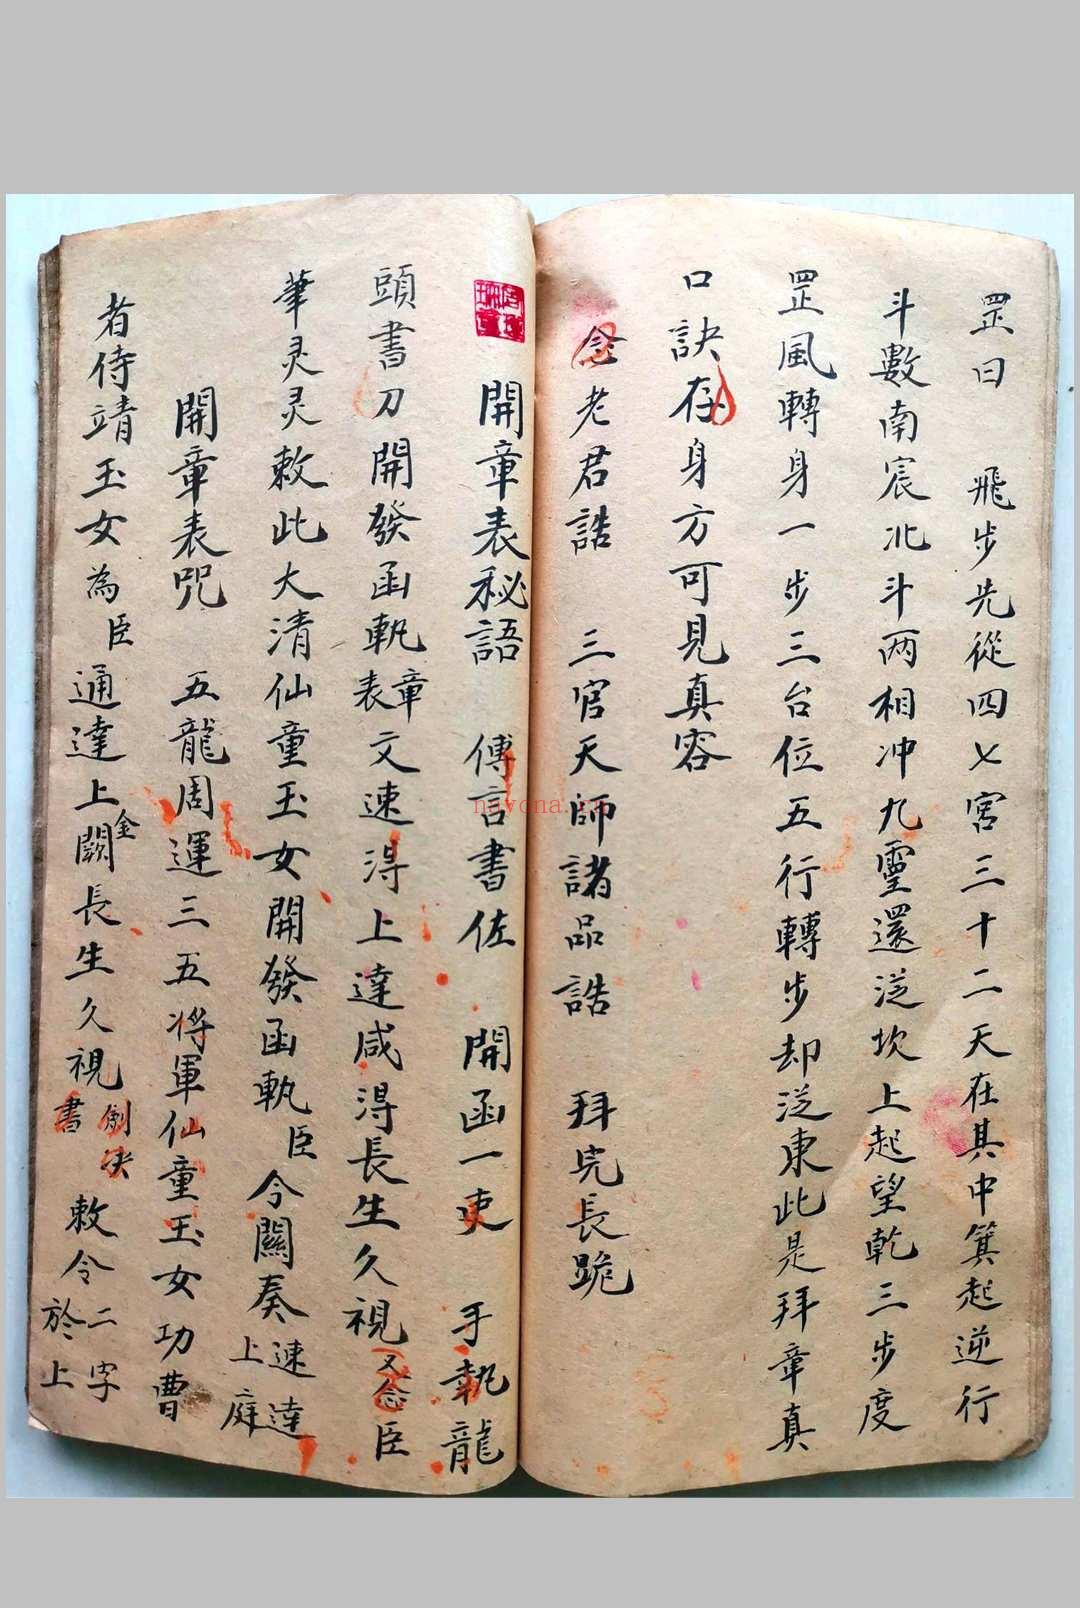 罡曰　飛步先從四七宮三十二天在其中箕起逆行
斗數南宸北斗两相冲九靈還泛坎上起望乾三步度
罡風轉身一步三台位五行轉步却泛東此是拜章真
口訣存身方可見真容
念老君誥　三官天師諸品誥　拜完長跪
開章表秘語　傅言書佐　開函一吏　手執龍
頭書刀開發函執章表文速淂上達咸淂長生久視又念臣
筆灵灵敕此大清仙童玉女開發函執臣今關奏速達上庭
開章表咒　五龍周運三五将軍仙童玉女功曹
者侍靖玉女為臣通達上金闕長生久視劍訣書敕令二字於上